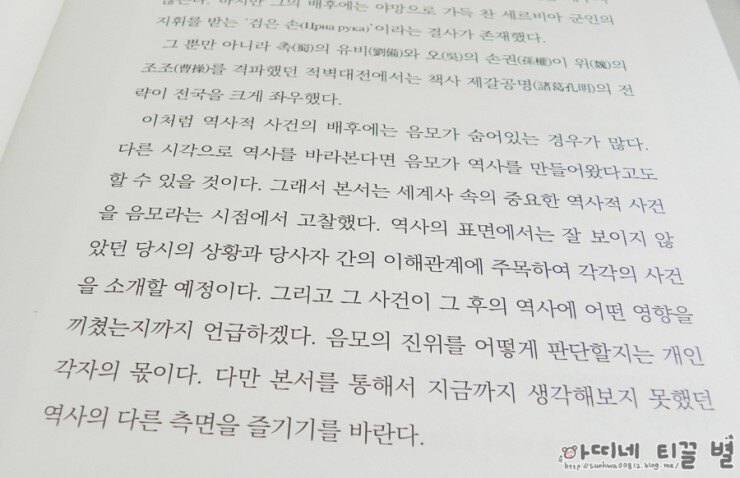 않는다. 하지만 그의 배후에는 야망으로 가득 찬 세르비아 군인의
지휘를 받는 '검은 손(Црна рука)'이라는 결사가 존재했다.
그 뿐만 아니라 촉(蜀)의 유비(劉備)와 오(吳)의 손권(孫權)이 위(魏)의
조조(曹操)를 격파했던 적벽대전에서는 책사 제갈공명(諸葛孔明)의 전
략이 전국을 크게 좌우했다.
이처럼 역사적 사건의 배후에는 음모가 숨어있는 경우가 많다.
다른 시각으로 역사를 바라본다면 음모가 역사를 만들어왔다고도
할 수 있을 것이다. 그래서 본서는 세계사 속의 중요한 역사적 사건
을 음모라는 시점에서 고찰했다. 역사의 표면에서는 잘 보이지 않
았던 당시의 상황과 당사자 간의 이해관계에 주목하여 각각의 사건
을 소개할 예정이다. 그리고 그 사건이 그 후의 역사에 어떤 영향을
끼쳤는지까지 언급하겠다. 음모의 진위를 어떻게 판단할지는 개인
각자의 몫이다. 다만 본서를 통해서 지금까지 생각해보지 못했던
역사의 다른 측면을 즐기기를 바란다.
아띠네 티끌 별
http://sunhwa00812.blog.me/